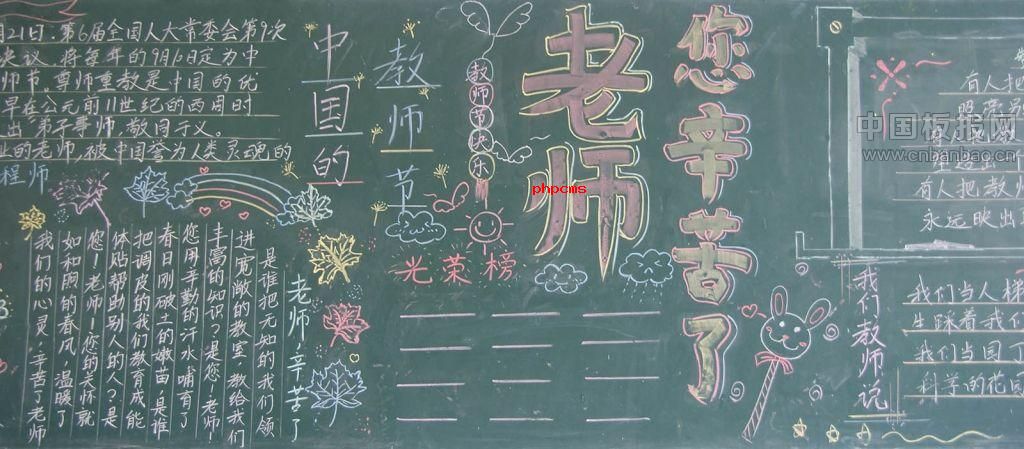 月21日.第6届全国人大常委会第9次
决议.将每年的9月10日定为中
师节.尊师重教是中国的优
早在公元前11世纪的西周时
出“弟子事师,敬同于父。
业的老师,被中国誉为人类灵魂的
程师
中国的
教师节
教师节快乐
老师
您辛苦了
phpcms
光荣榜
老师辛苦了
是谁把无知的我们领
进宽敞的教室,教给我们
丰富的知识?是您!老师!
您用辛勤的汗水哺育了
春日刚破土的嫩苗!是谁
把调皮的我们教育成能
体贴帮助别人的人?是
您!老师!您的关怀就
如和煦的春风温暖了
我们的心灵.辛苦了老师
有人把
中国板报网
www.cnbanbao.cn
有人把教师
永远映出
我们教师说
我们当人梯
生踩着我们
我们当园丁
科学的花